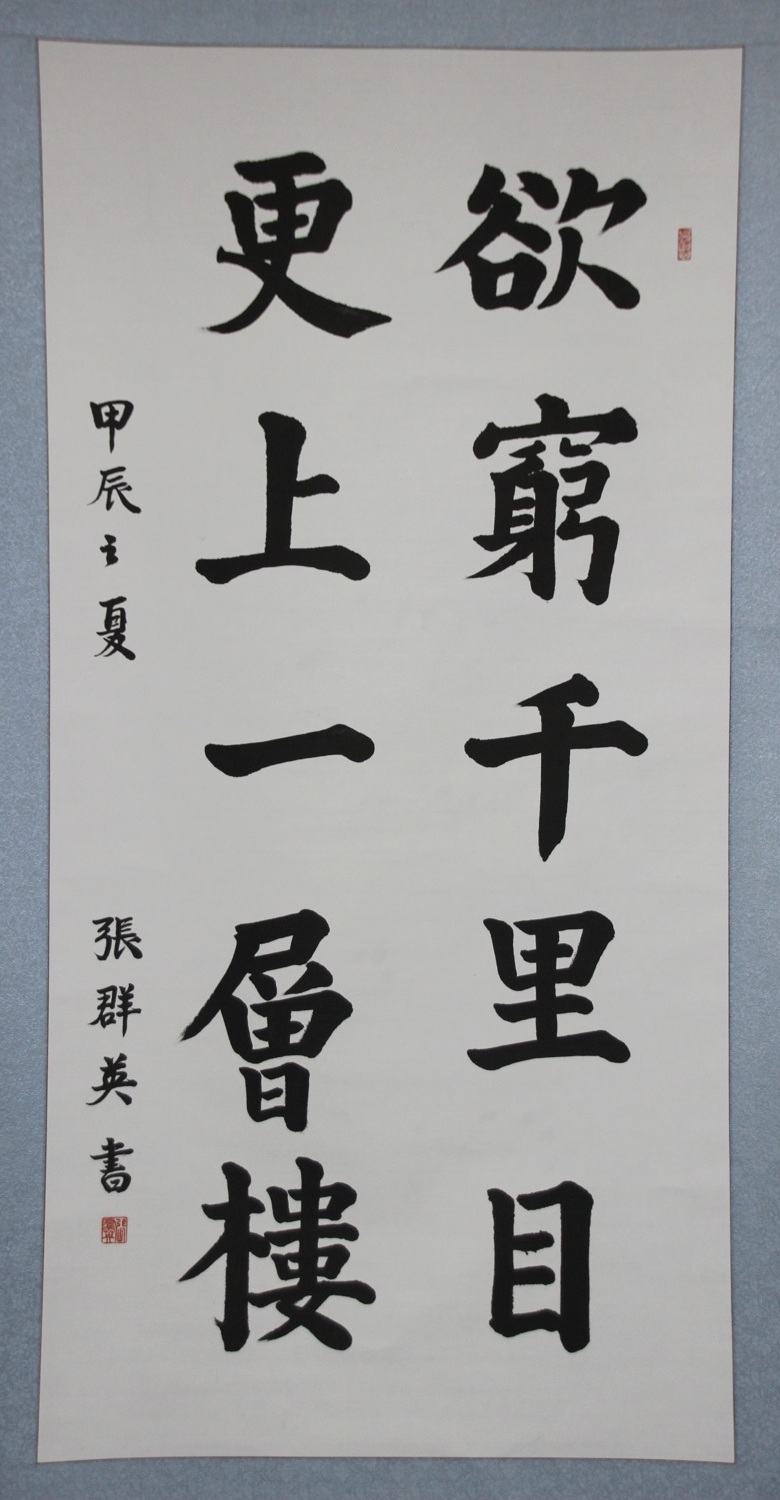 欲窮千里目
更上一層樓
甲辰之夏
張群英書